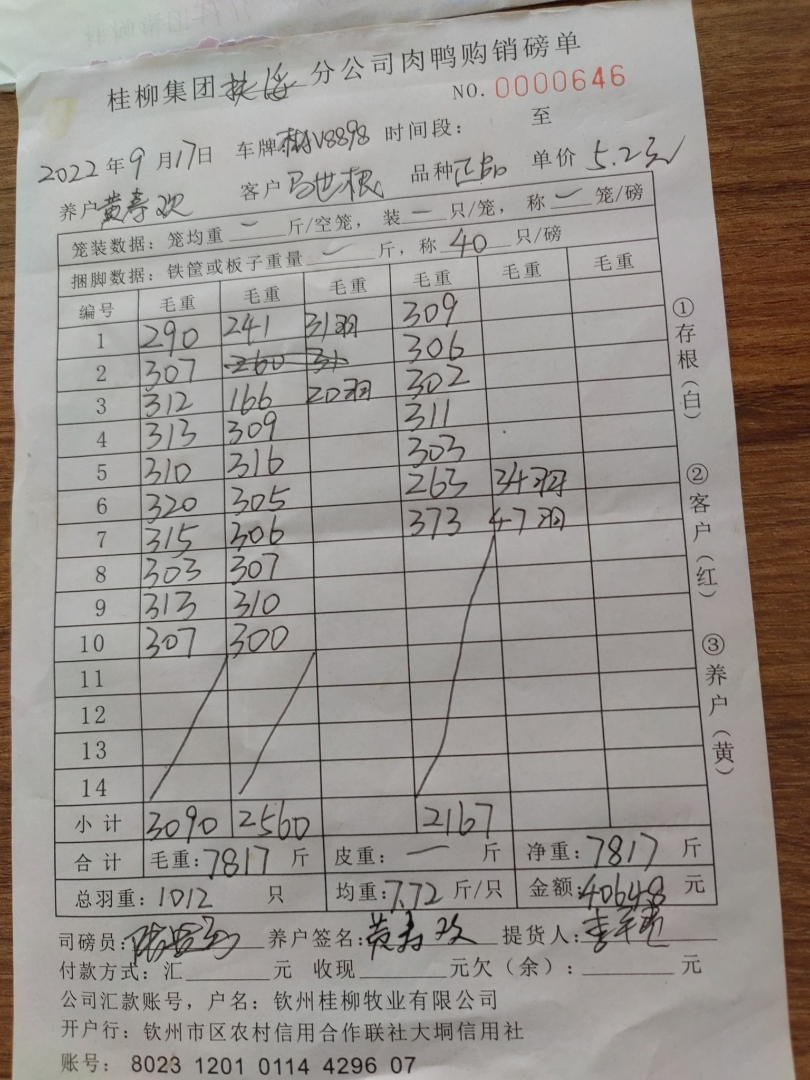 桂柳集团 分公司肉鸭购销磅单
NO. 0000646
2022年9月17日 车牌 V8898 时间段： 至
养户黄寿欢 客户马世根 品种正品 单价5.2元
笼装数据：笼均重 一 斤/空笼，装 一 只/笼，称 一 笼/磅
捆脚数据：铁筐或板子重量 一 斤，称 40 只/磅
编号 毛重 毛重 毛重 毛重 毛重 毛重
1 290 241 31羽 309
2 307 260 31 306
3 312 166 20羽 302
4 313 309 311
5 310 316 303
6 320 305 263 34羽
7 315 306 373 47羽
8 303 307
9 313 310
10 307 300
11
12
13
14
小计 3090 2560 2167
合计 毛重：7817 斤 皮重：一 斤 净重：7817 斤
总羽重：1012 只 均重：7.72 斤/只 金额：40648 元
司磅员： 养户签名：黄寿欢 提货人：
付款方式：汇 元 收现 元欠（余）： 元
公司汇款账号，户名：钦州桂柳牧业有限公司
开户行：钦州市区农村信用合作联社大垌信用社
账号：8023 1201 0114 4296 07
①存根（白）
②客户（红）
③养户（黄）